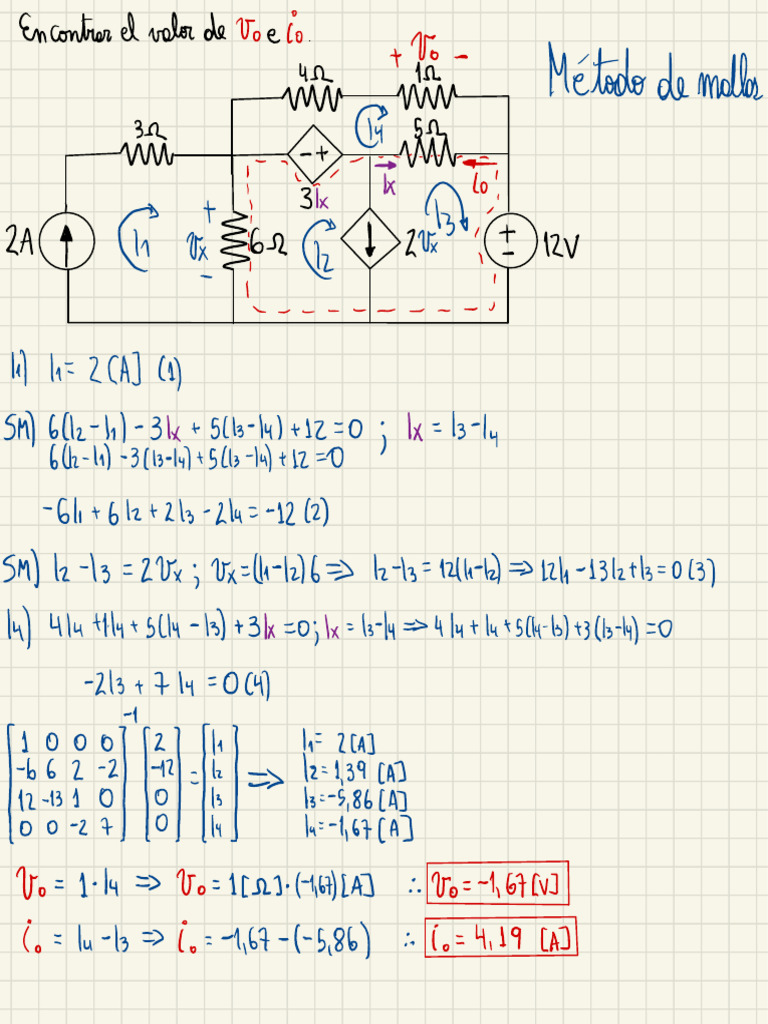 Encontrar el valor de Vo e io.
+ Vo -
Método de mallas
4Ω 1Ω
I4
3Ω 5Ω
- +
3Ix Ix io
2A I1 + Vx - 6Ω I2 2Vx I3 + - 12V
I1) I1 = 2[A] (1)
SM) 6(I2-I1) - 3Ix + 5(I3-I4) + 12 = 0 ; Ix = I3-I4
6(I2-I1) - 3(I3-I4) + 5(I3-I4) + 12 = 0
-6I1 + 6I2 + 2I3 - 2I4 = -12 (2)
SM) I2-I3 = 2Vx ; Vx = (I1-I2)6 ⇒ I2-I3 = 12(I1-I2) ⇒ 12I1 - 13I2 + I3 = 0 (3)
I4) 4I4 + 1I4 + 5(I4-I3) + 3Ix = 0 ; Ix = I3-I4 ⇒ 4I4 + I4 + 5(I4-I3) + 3(I3-I4) = 0
-2I3 + 7I4 = 0 (4)
-1
1 0 0 0 2 I1 I1 = 2[A]
-6 6 2 -2 -12 = I2 ⇒ I2 = 1,39 [A]
12 -13 1 0 0 I3 I3 = -5,86 [A]
0 0 -2 7 0 I4 I4 = -1,67 [A]
Vo = 1·I4 ⇒ Vo = 1[Ω]·(-1,67)[A] ∴ Vo = -1,67 [V]
io = I4-I3 ⇒ io = -1,67-(-5,86) ∴ io = 4,19 [A]